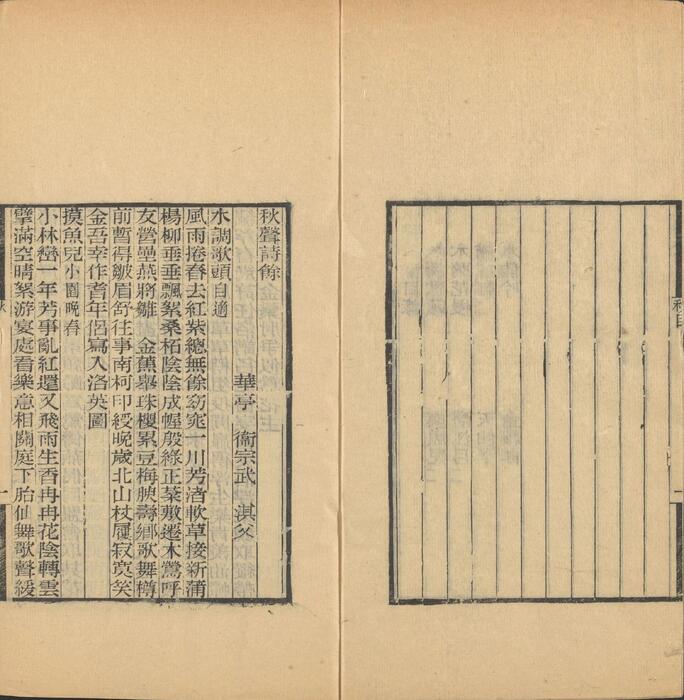 秋聲詩餘
華亭 衞宗武 淇父
水調歌頭自適
風雨捲春去紅紫總無餘窈窕一川芳渚軟草接新蒲
楊柳垂垂飄絮桑柘陰陰成幄殷綠正菜敷遷木鶯呼
友營壘燕將雛 金蕉舉珠櫻累豆梅腴壽鄉歌舞樽
前暫得皺眉舒往事南柯印綬晚歲北山杖屨寂寞笑
金吾幸作耆年侶寫入洛英圖
摸魚兒小園晚春
小林巒一年芳事亂紅還又飛雨生香冉冉花陰轉雲
擘滿空晴絮游宴處看樂意相關庭下胎仙舞歌聲緩